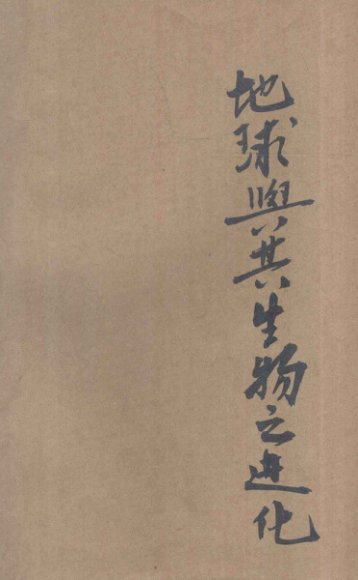 地球與其生物之進化